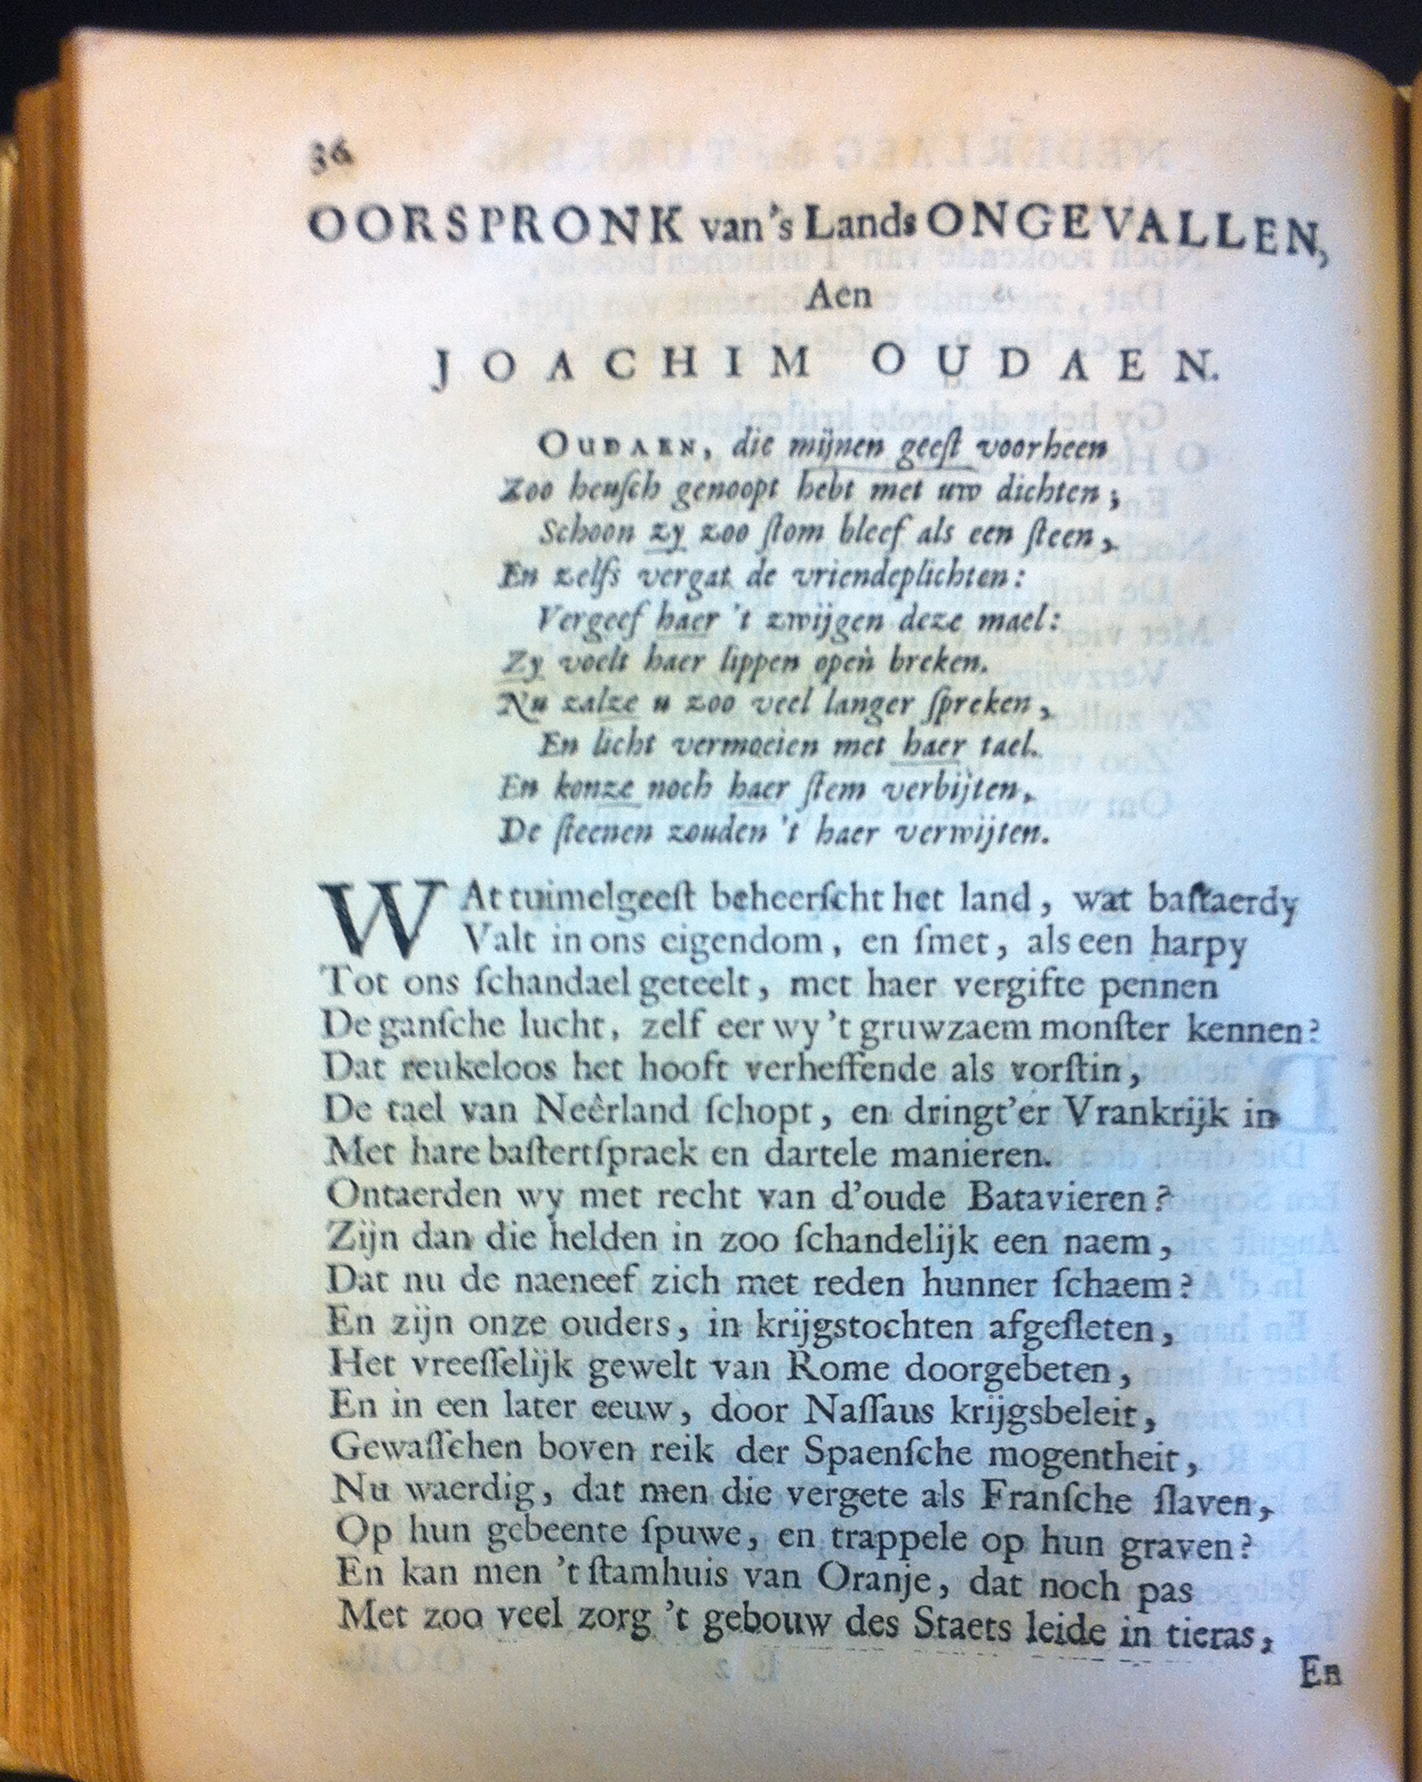 36
OORSPRONK van 's Lands ONGEVALLEN,
Aen
JOACHIM OUDAEN.
OUDAEN, die mijnen geeſt voorheen
Zoo heuſch genoopt hebt met uw dichten;
Schoon zy zoo ſtom bleef als een ſteen,
En zelfs vergat de vriendeplichten:
Vergeef haer 't zwijgen deze mael:
Zy voelt haer lippen open breken.
Nu zalze u zoo veel langer ſpreken,
En licht vermoeien met haer tael.
En konze noch haer ſtem verbijten,
De ſteenen zouden 't haer verwijten.
WAt tuimelgeeſt beheerſcht het land, wat baſtaerdy
Valt in ons eigendom, en ſmet, als een harpy
Tot ons ſchandael geteelt, met haer vergifte pennen
De ganſche lucht, zelf eer wy 't gruwzaem monſter kennen?
Dat reukeloos het hooft verheffende als vorſtin,
De tael van Neêrland ſchopt, en dringt'er Vrankrijk in
Met hare baſtertſpraek en dartele manieren.
Ontaerden wy met recht van d'oude Batavieren?
Zijn dan die helden in zoo ſchandelijk een naem,
Dat nu de naeneef zich met reden hunner ſchaem?
En zijn onze ouders, in krijgstochten afgeſleten,
Het vreeſſelijk gewelt van Rome doorgebeten,
En in een later eeuw, door Naſſaus krijgsbeleit,
Gewaſſchen boven reik der Spaenſche mogentheit,
Nu waerdig, dat men die vergete als Franſche ſlaven,
Op hun gebeente ſpuwe, en trappele op hun graven?
En kan men 't ſtamhuis van Oranje, dat noch pas
Met zoo veel zorg 't gebouw des Staets leide in tieras,
En